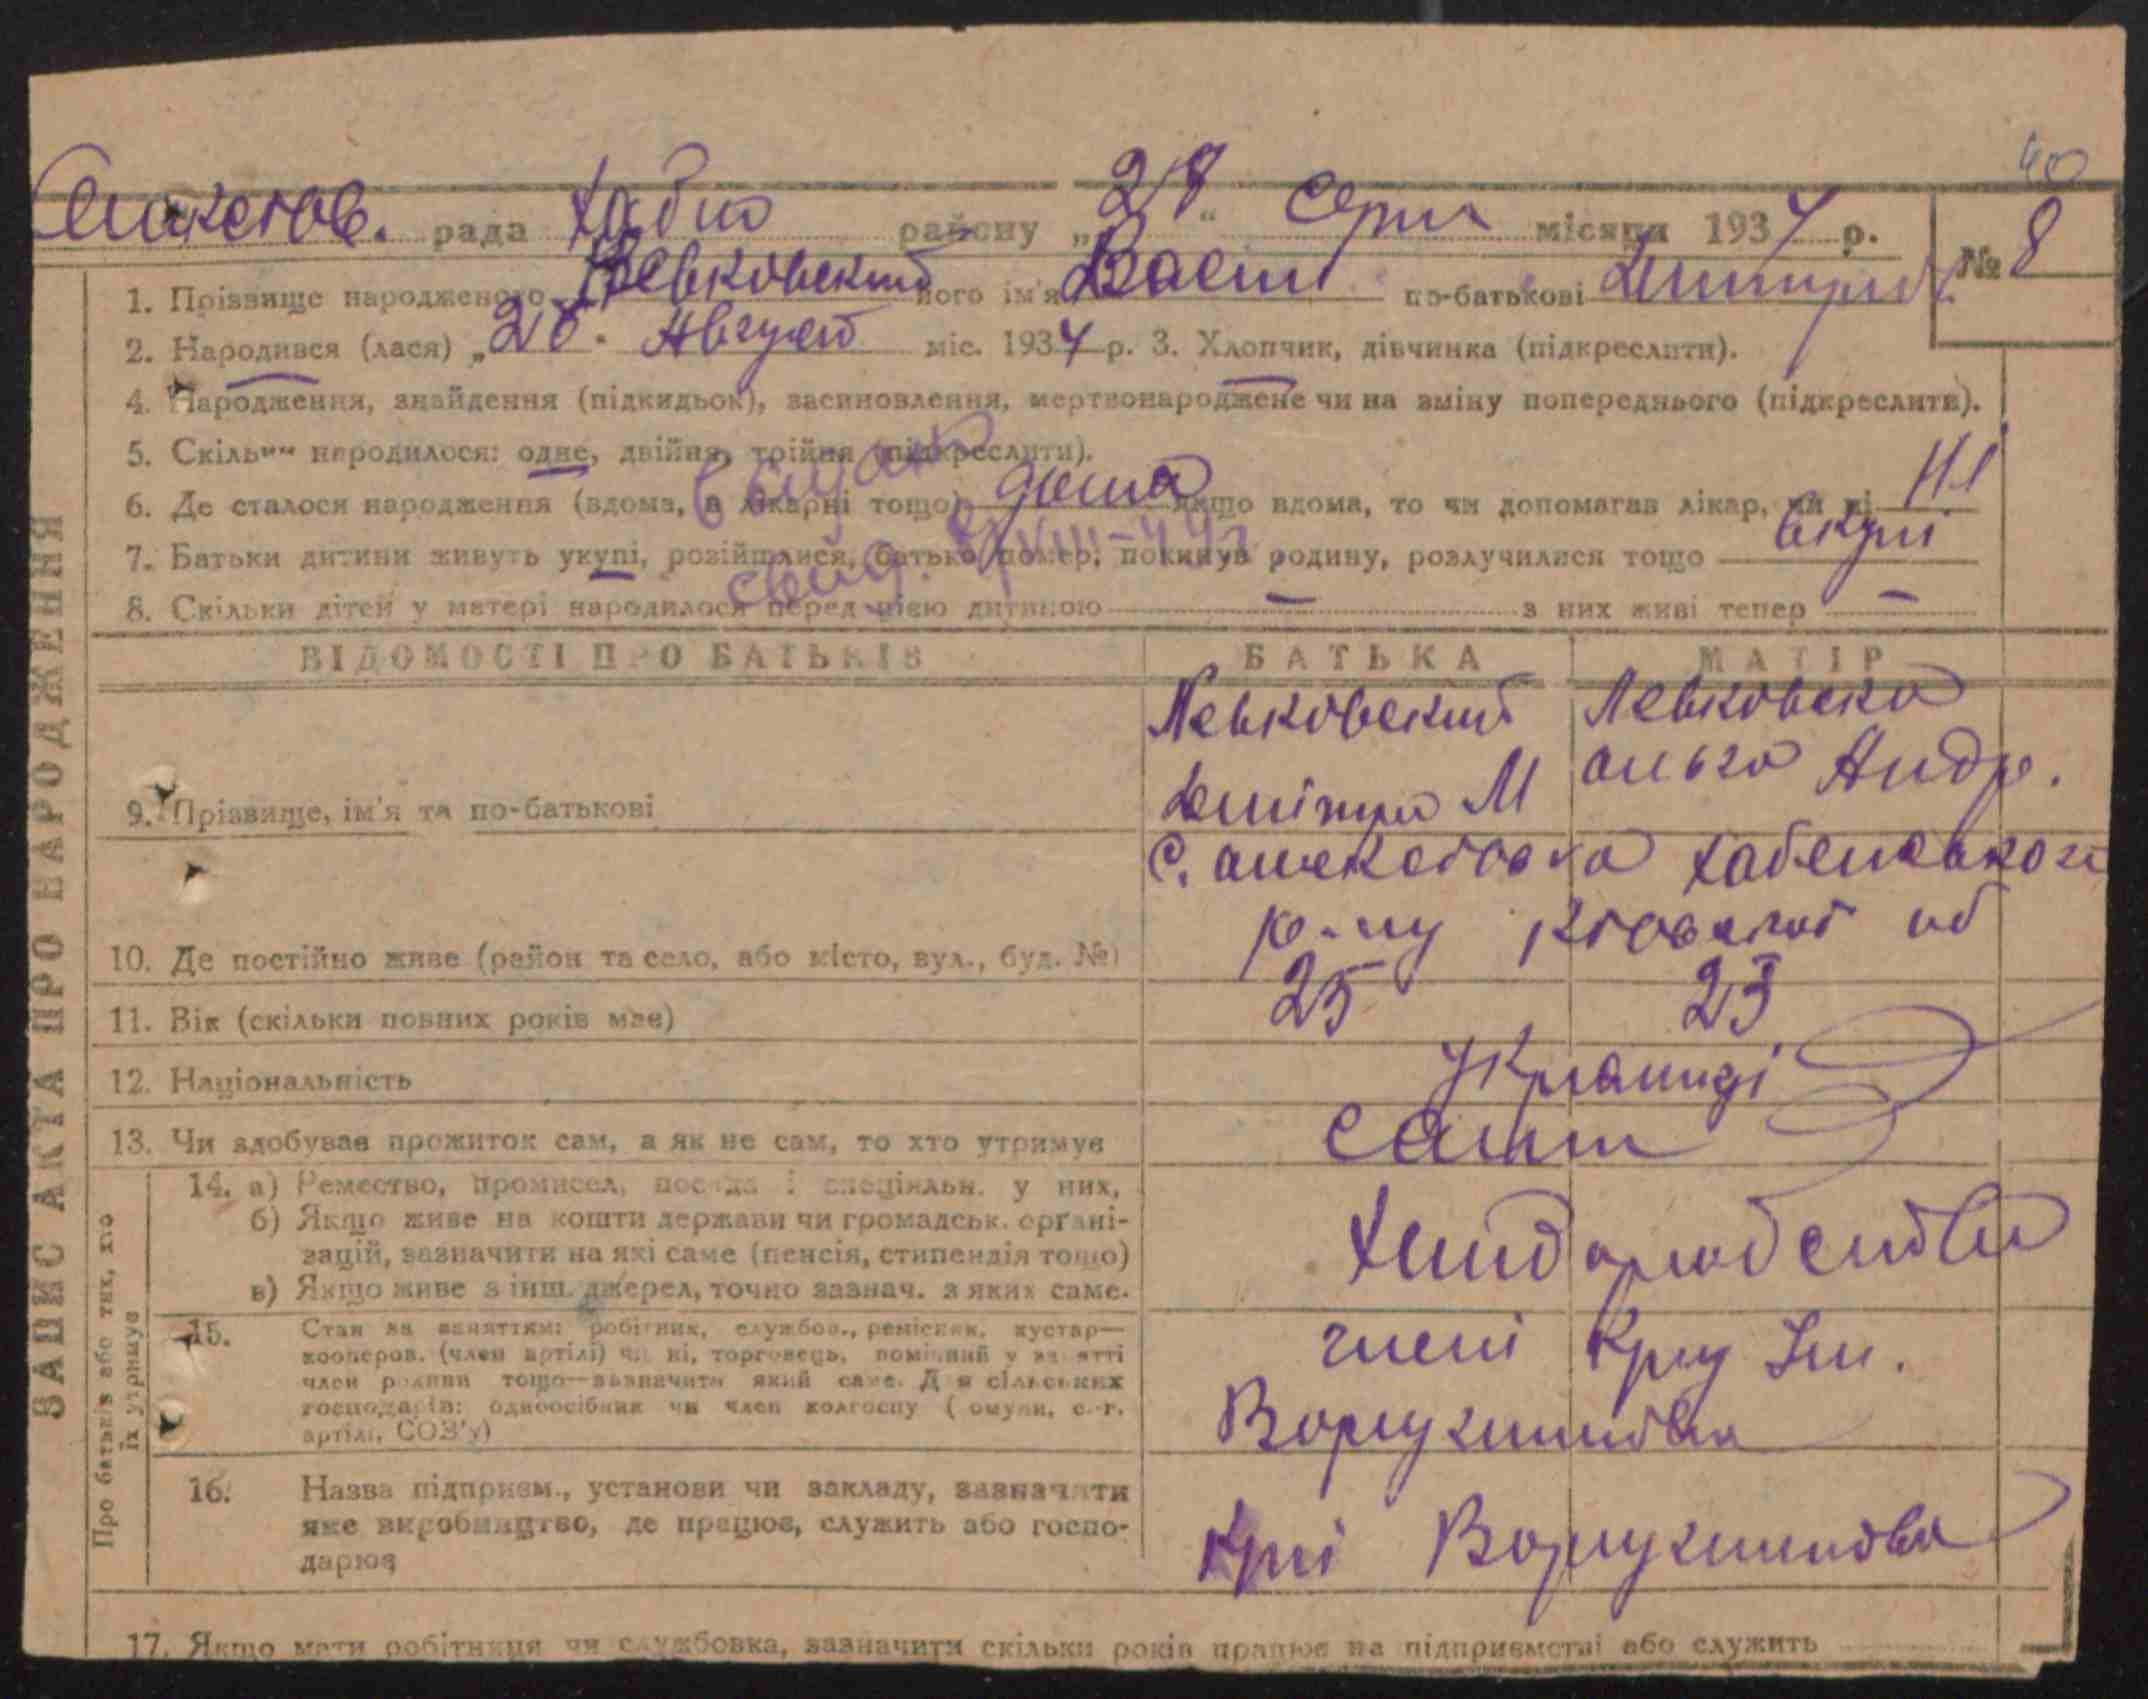 40
рада Хабно району „28“ Серп місяця 1934 р. № 8
1. Прізвище народженого Левковский його ім'я Васи по-батькові Дмитров
2. Народився (лася) „20. Август міс. 1934 р. 3. Хлопчик, дівчинка (підкреслити).
4. Народження, знайдення (підкидьок), засиновлення, мертвонароджене чи на зміну попереднього (підкреслити).
5. Скільки народилося: одне, двійня, трійня (підкреслити).
6. Де сталося народження (вдома, в лікарні тощо) дома якщо вдома, то чи допомагав лікар, чи ні Ні
7. Батьки дитини живуть укупі, розійшлися, батько помер, покинув родину, розлучилися тощо вкупі
8. Скільки дітей у матері народилося перед цією дитиною — з них живі тепер —
свид. VIII-44
ВІДОМОСТІ ПРО БАТЬКІВ БАТЬКА МАТІР
Левковский Левковска
Дмітро М Ольга Андр.
9. Прізвище, ім'я та по-батькові
С. Хабенського
р-ну Київської об
10. Де постійно живе (район та село, або місто, вул., буд. №)
11. Вік (скільки повних років має) 25 23
12. Національність Українці
13. Чи здобуває прожиток сам, а як не сам, то хто утримує сами
14. а) Ремество, промисел, посада і спеціяльн. у них,
б) Якщо живе на кошти держави чи громадськ. органі-
зацій, зазначити на які саме (пенсія, стипендія тощо)
в) Якщо живе з інш. джерел, точно зазнач. з яких саме.
Хліборобство
15. Стан за заняттям: робітник, службов., ремісник, кустар—
кооперов. (член артілі) чи ні, торговець, помічний у занятті
член родини тощо—зазначити який саме. Для сільських
господарів: одноосібник чи член колгоспу (комуни, с.-г.
артілі, СОЗ'у)
члені Ім.
Ворушилова
16. Назва підприєм., установи чи закладу, зазначити
яке виробництво, де працює, служить або госпо-
дарює
Ворушилова
17. Якщо мати робітниця чи службовка, зазначити скільки років працює на підприємстві або служить
ЗАПИС АКТА ПРО НАРОДЖЕННЯ
Про батьків або тих, хто
їх утримує